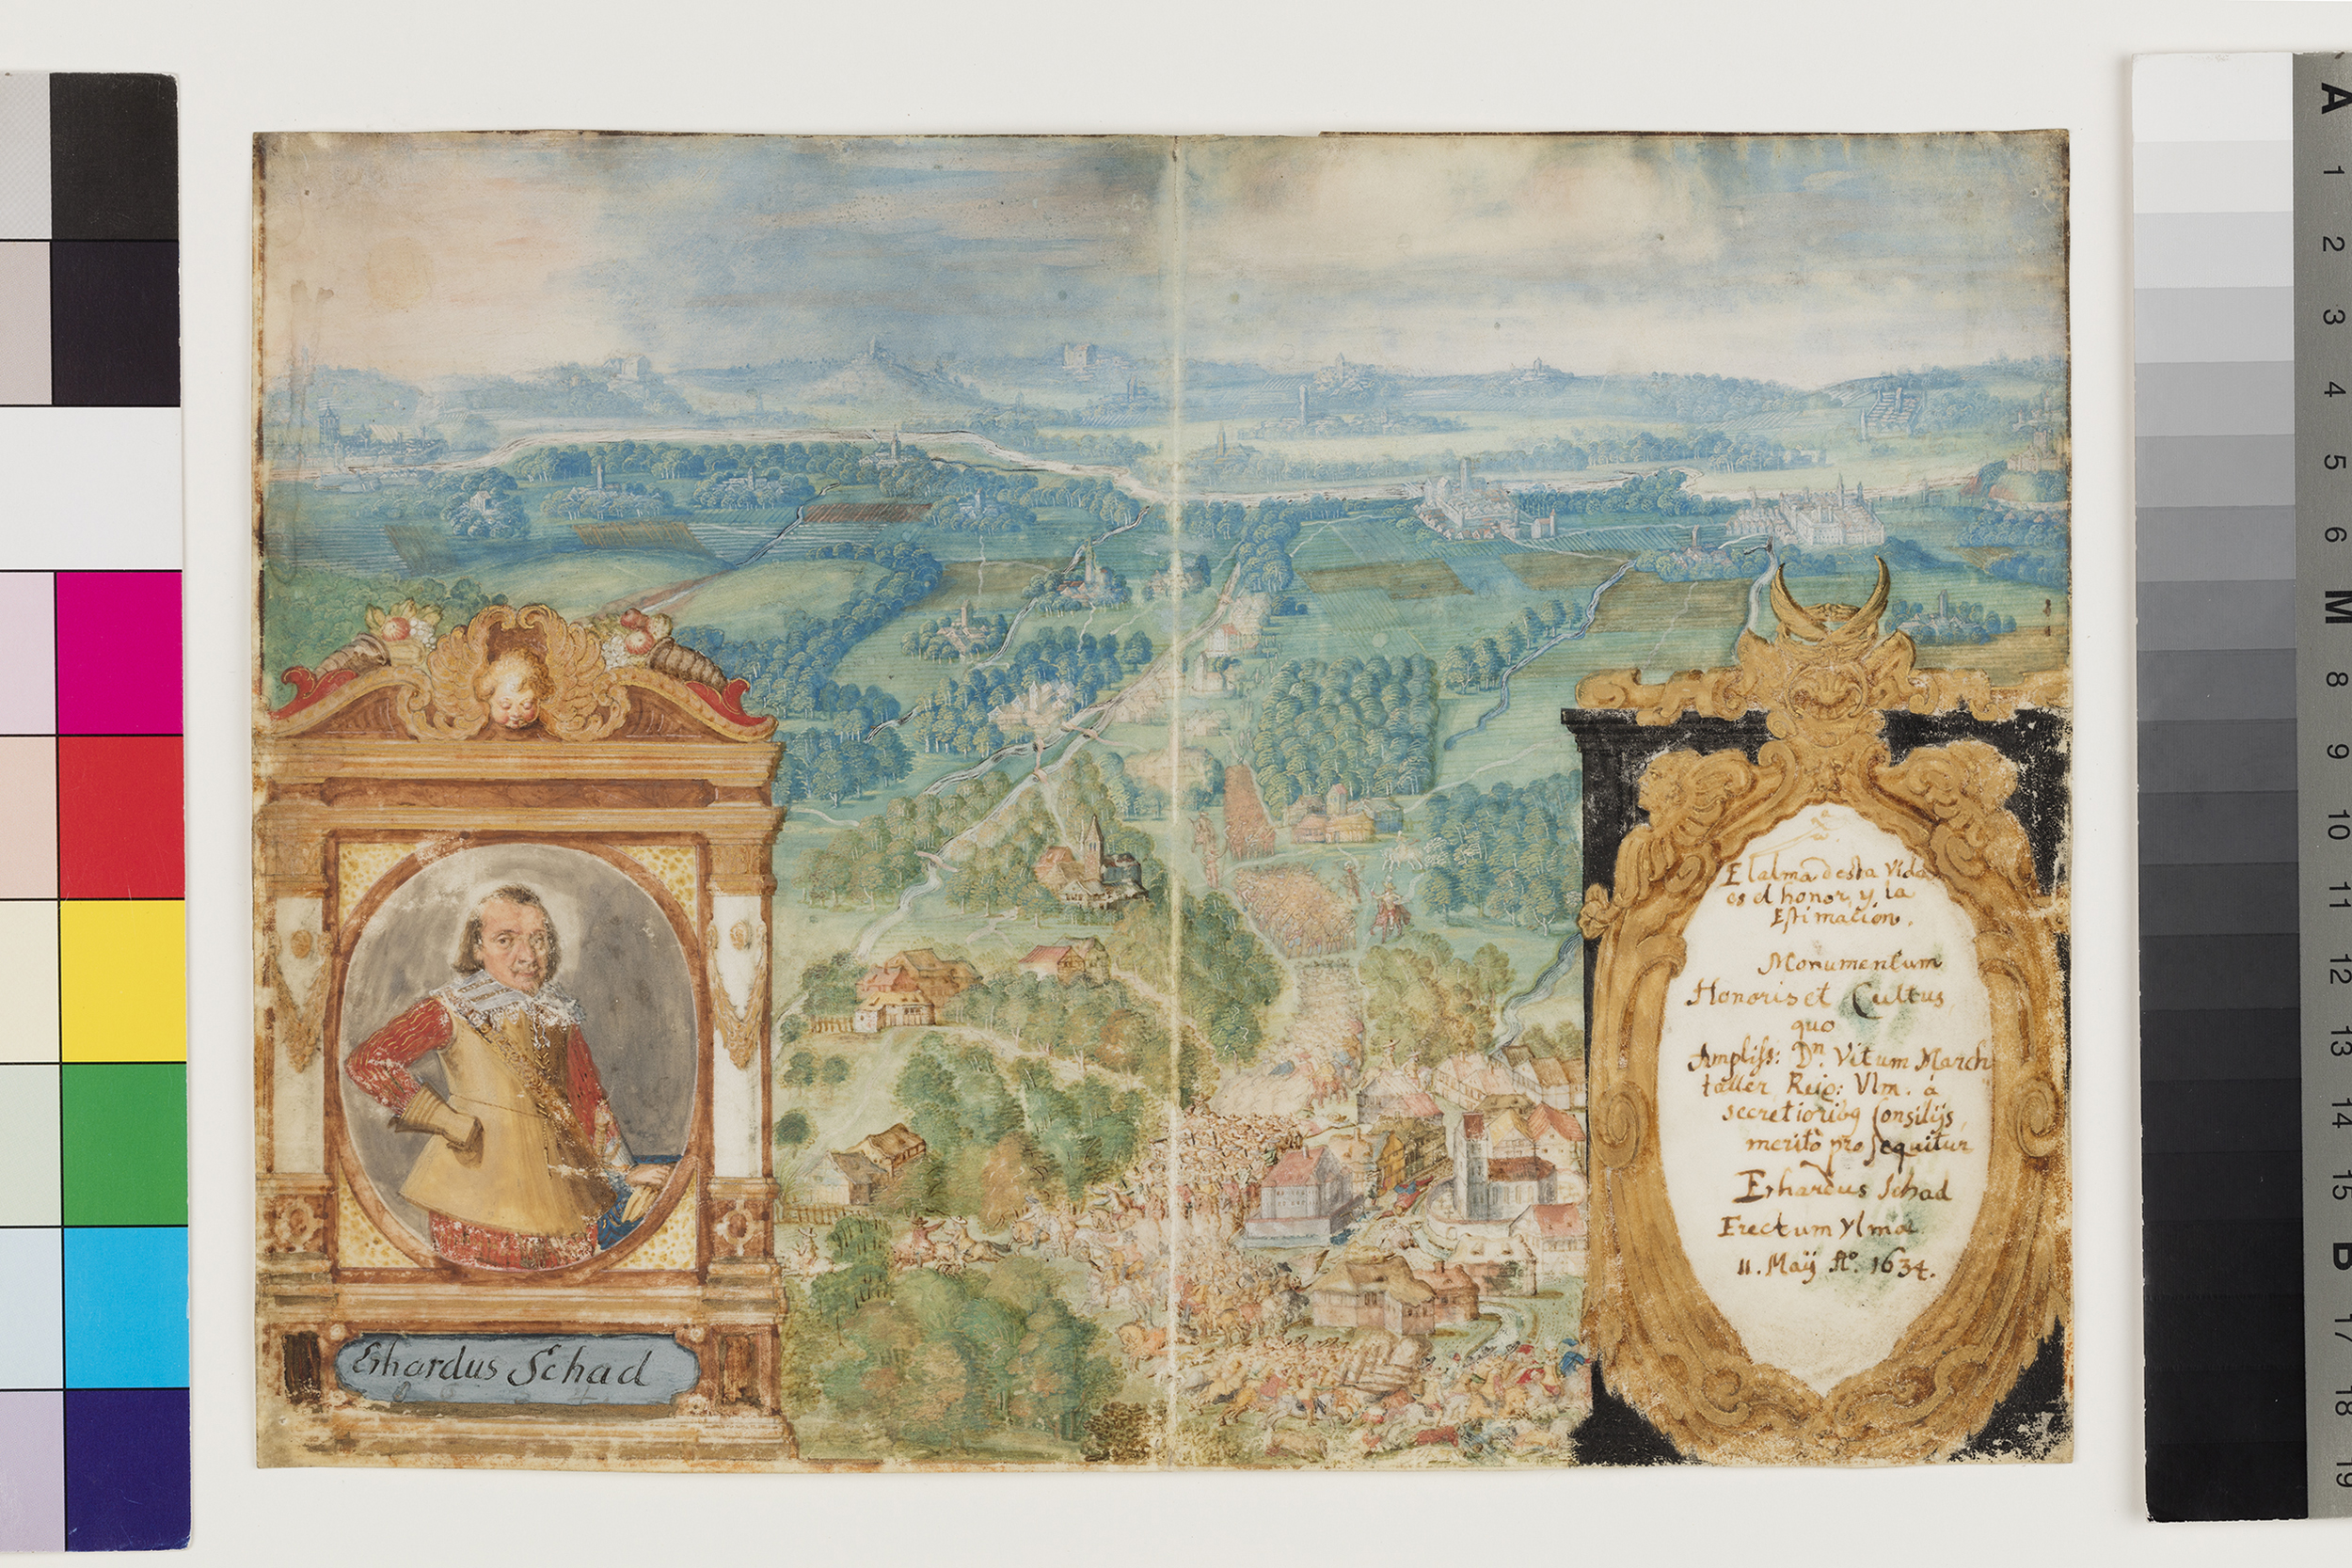 Erhardus Schad
El alma desta Vida
es el honor, y la
Estimacion.
Monumentum
Honoris et Cultus
quo
Ampliss: Dn. Vitum March
taller Reip: Vlm. á
secretioribq Consilijs,
meritò prosequitur
Erhardus Schad
Erectum Vlmae
11. Maÿ Ao. 1634.
A
1
2
3
4
5
6
M
8
9
10
11
12
13
14
15
B
17
18
19